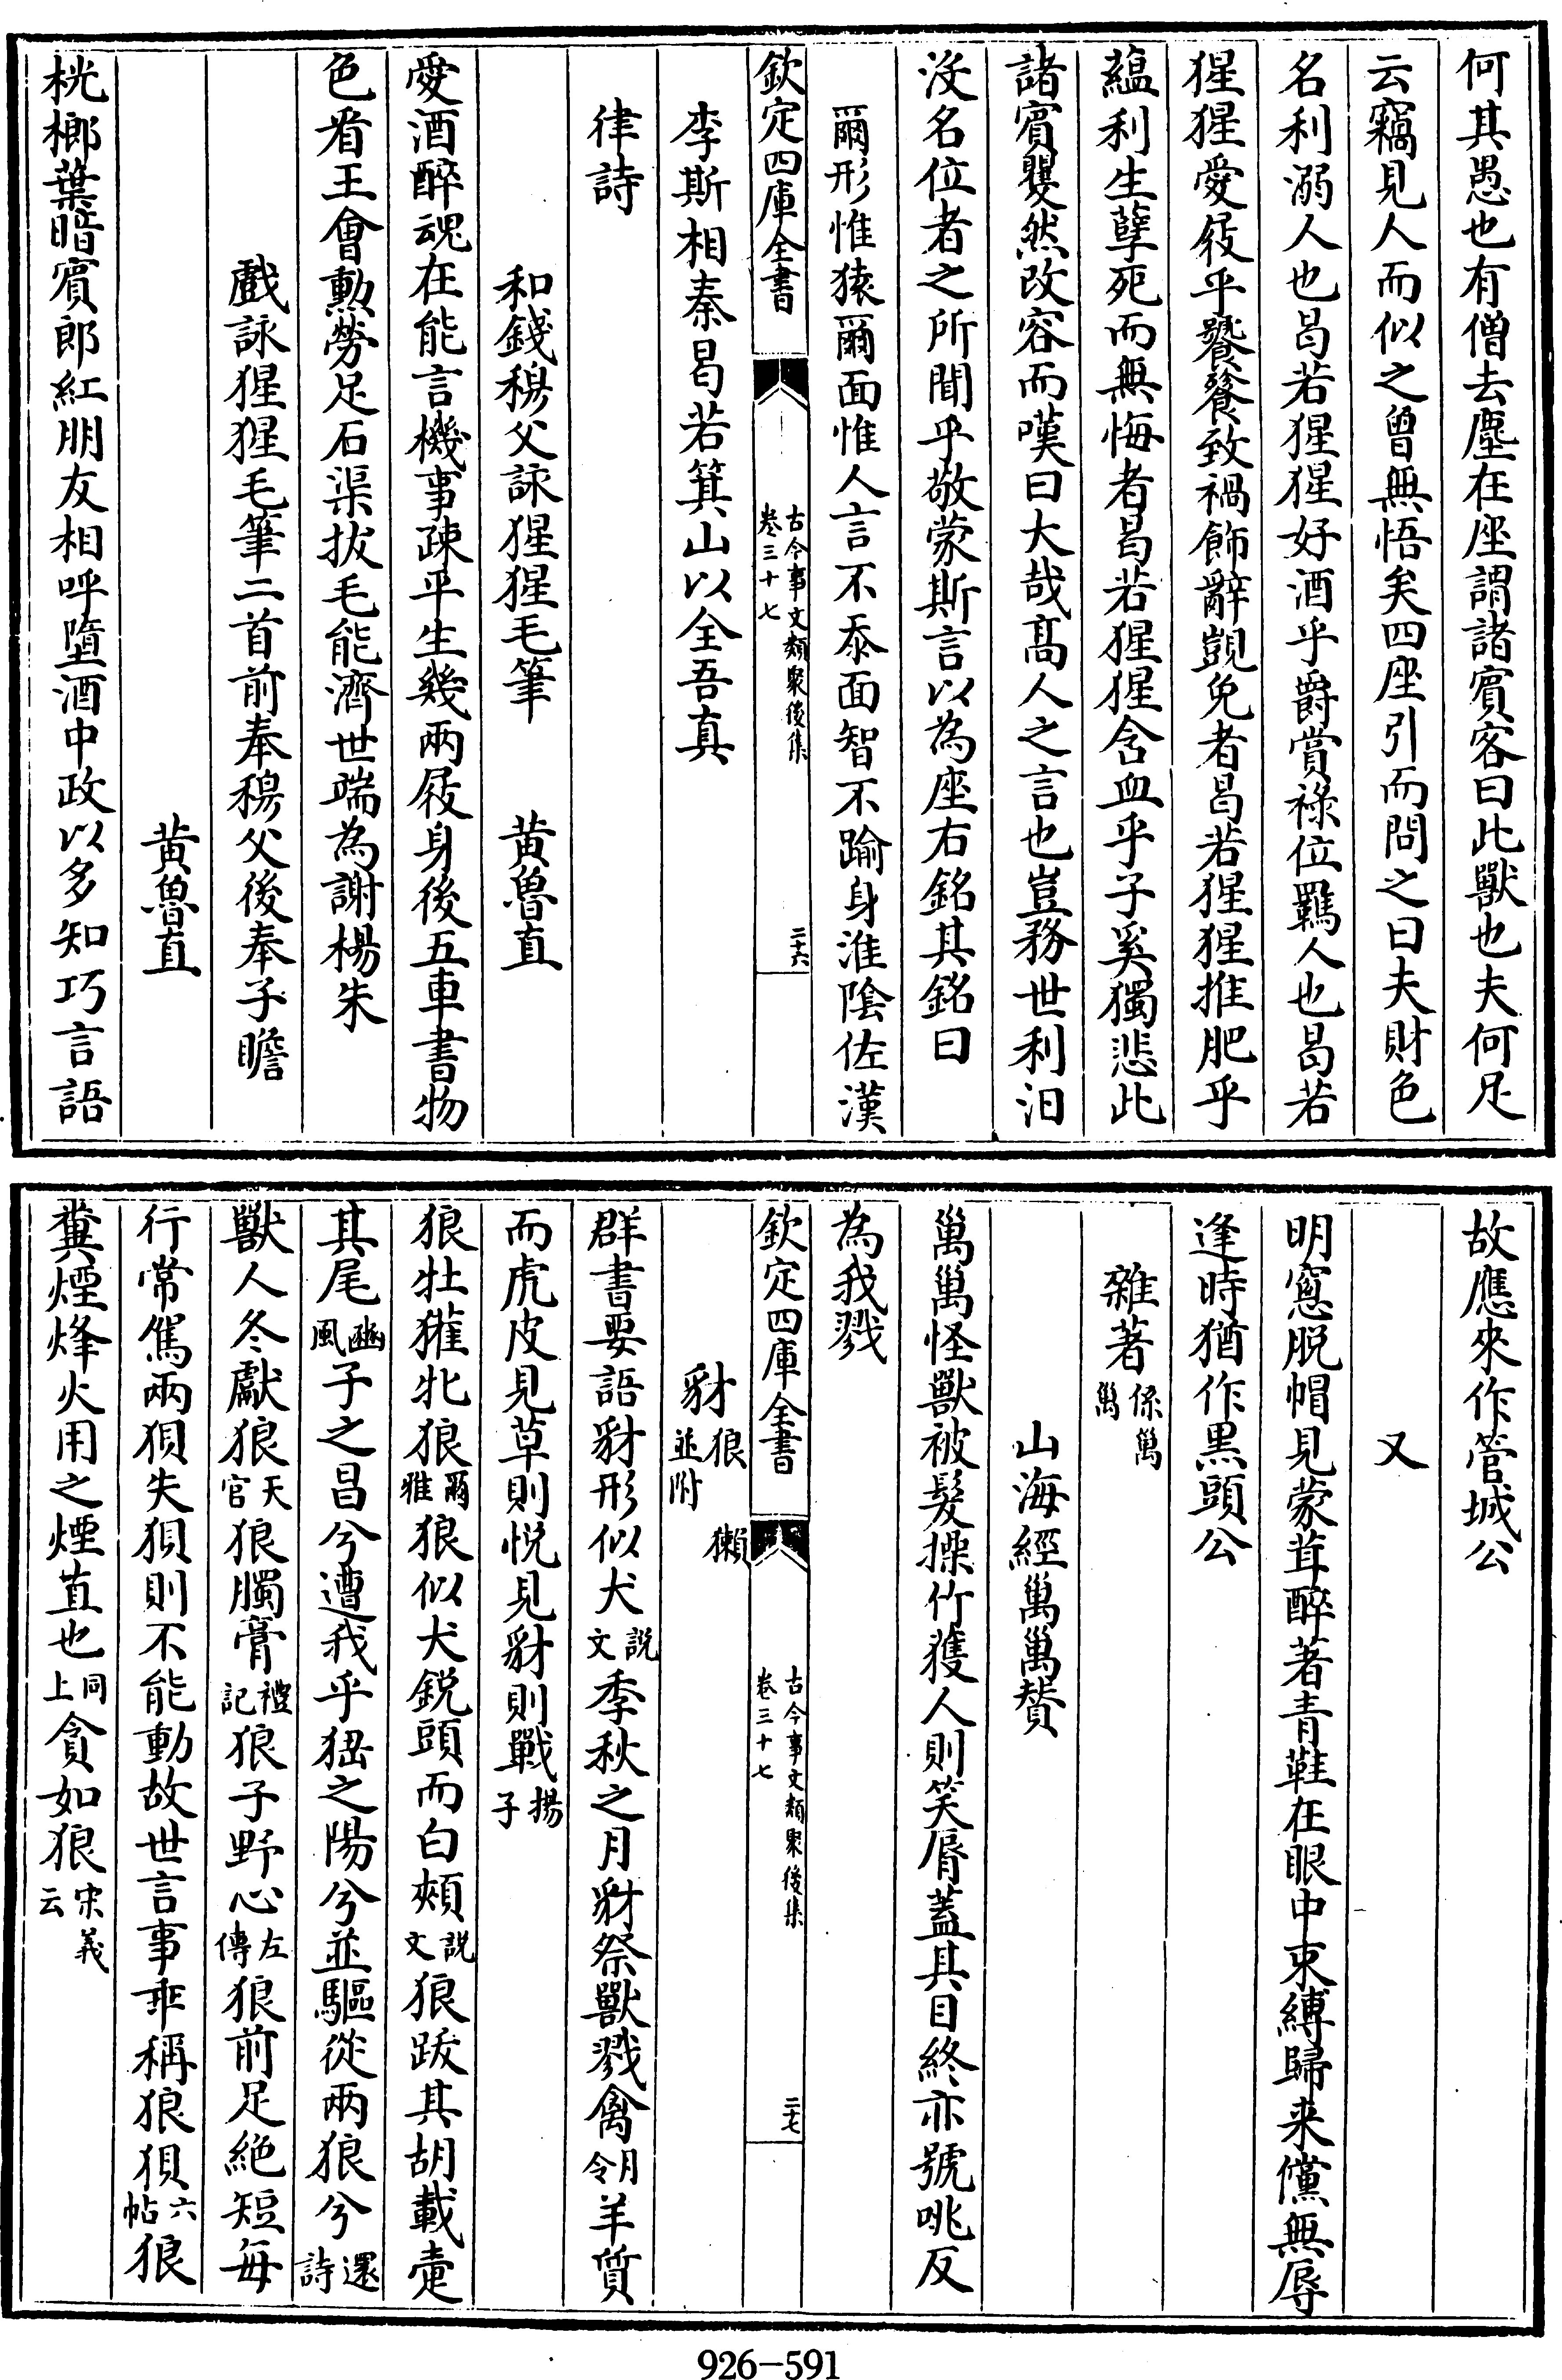 何其愚也有僧去塵在座謂諸賓客曰此獸也夫何足
云竊見人而似之曾無悟矣四座引而問之曰夫財色
名利溺人也曷若猩猩好酒乎爵賞祿位羈人也曷若
猩猩愛屐乎饕餮致禍飾辭覬免者曷若猩猩推肥乎
蘊利生孽死而無悔者曷若猩猩含血乎子奚獨悲此
諸賓矍然改容而嘆曰大哉髙人之言也豈務世利汨
没名位者之所聞乎敬蒙斯言以為座右銘其銘曰
爾形惟猿爾面惟人言不忝面智不踰身淮陰佐漢
欽定四庫全書
古今事文類聚後集
卷三十七
二十六
李斯相秦曷若箕山以全吾真
律詩
和錢穆父詠猩猩毛筆 黄魯直
愛酒醉魂在能言機事疎平生幾兩屐身後五車書物
色看王會勲勞足石渠拔毛能濟世端為謝楊朱
戲詠猩猩毛筆二首前奉穆父後奉子瞻
黄魯直
桄榔葉暗賓郎紅朋友相呼墮酒中政以多知巧言語
故應來作管城公
又
明窻脱帽見蒙茸醉著青鞋在眼中束縛歸来儻無辱
逢時猶作黒頭公
雜著係𤟤𤟤
山海經𤟤𤟤賛
𤟤𤟤怪獸被髮操竹獲人則笑脣蓋其目終亦號咷反
為我戮
欽定四庫全書
古今事文類聚後集
卷三十七
二十七
豺狼 獺並附
群書要語豺形似犬說文季秋之月豺祭獸戮禽月令羊質
而虎皮見草則悦見豺則戰揚子
狼牡獾牝狼爾雅狼似犬鋭頭而白頰說文狼跋其胡載疐
其尾豳風子之昌兮遭我乎猺之陽兮並驅從兩狼兮還詩
獸人冬獻狼天官狼臅膏禮記狼子野心左傳狼前足絶短每
行常駕兩狽失狽則不能動故世言事乖稱狼狽六帖狼
糞煙烽火用之煙直也同上貪如狼宋義云
926-591